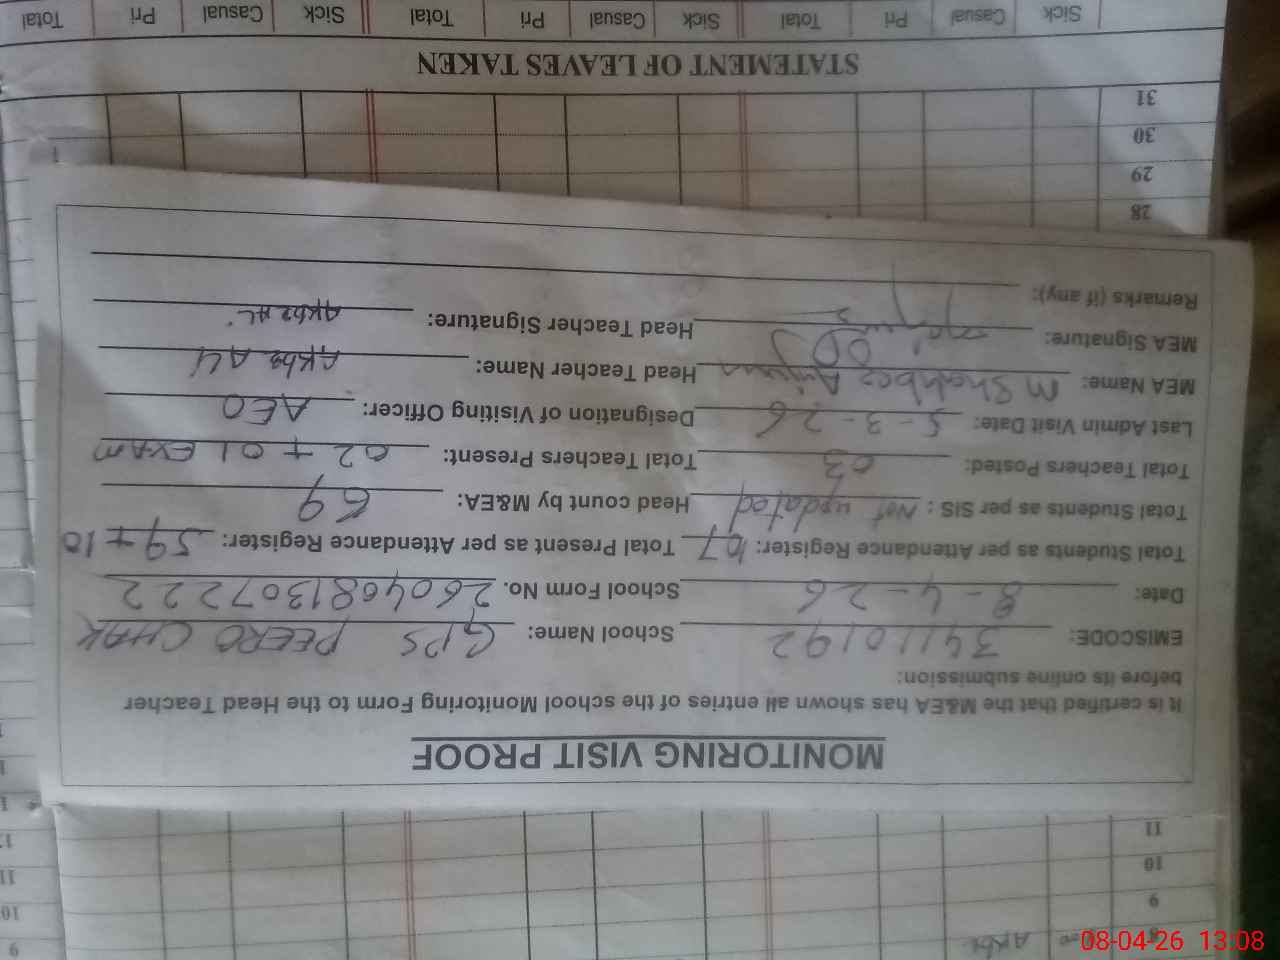 MONITORING VISIT PROOF
It is certified that the M&EA has shown all entries of the school Monitoring Form to the Head Teacher
before its online submission:
EMISCODE: 34110192 School Name: GPS PEERO CHAK
Date: 8-4-26 School Form No. 2604081307222
Total Students as per Attendance Register: 107 Total Present as per Attendance Register: 59+10
Total Students as per SIS: Not updated Head count by M&EA: 69
Total Teachers Posted: 03 Total Teachers Present: 02 + 01 EXAM
Last Admin Visit Date: 5-3-26 Designation of Visiting Officer: AEO
MEA Name: M Shahbaz Head Teacher Name:
MEA Signature: Head Teacher Signature:
Remarks (if any):
STATEMENT OF LEAVES TAKEN
Sick Casual Pri Total Sick Casual Pri Total Sick Casual Pri Total
8
9
10
11
28
29
30
31
9
10
11
08-04-26 13:08